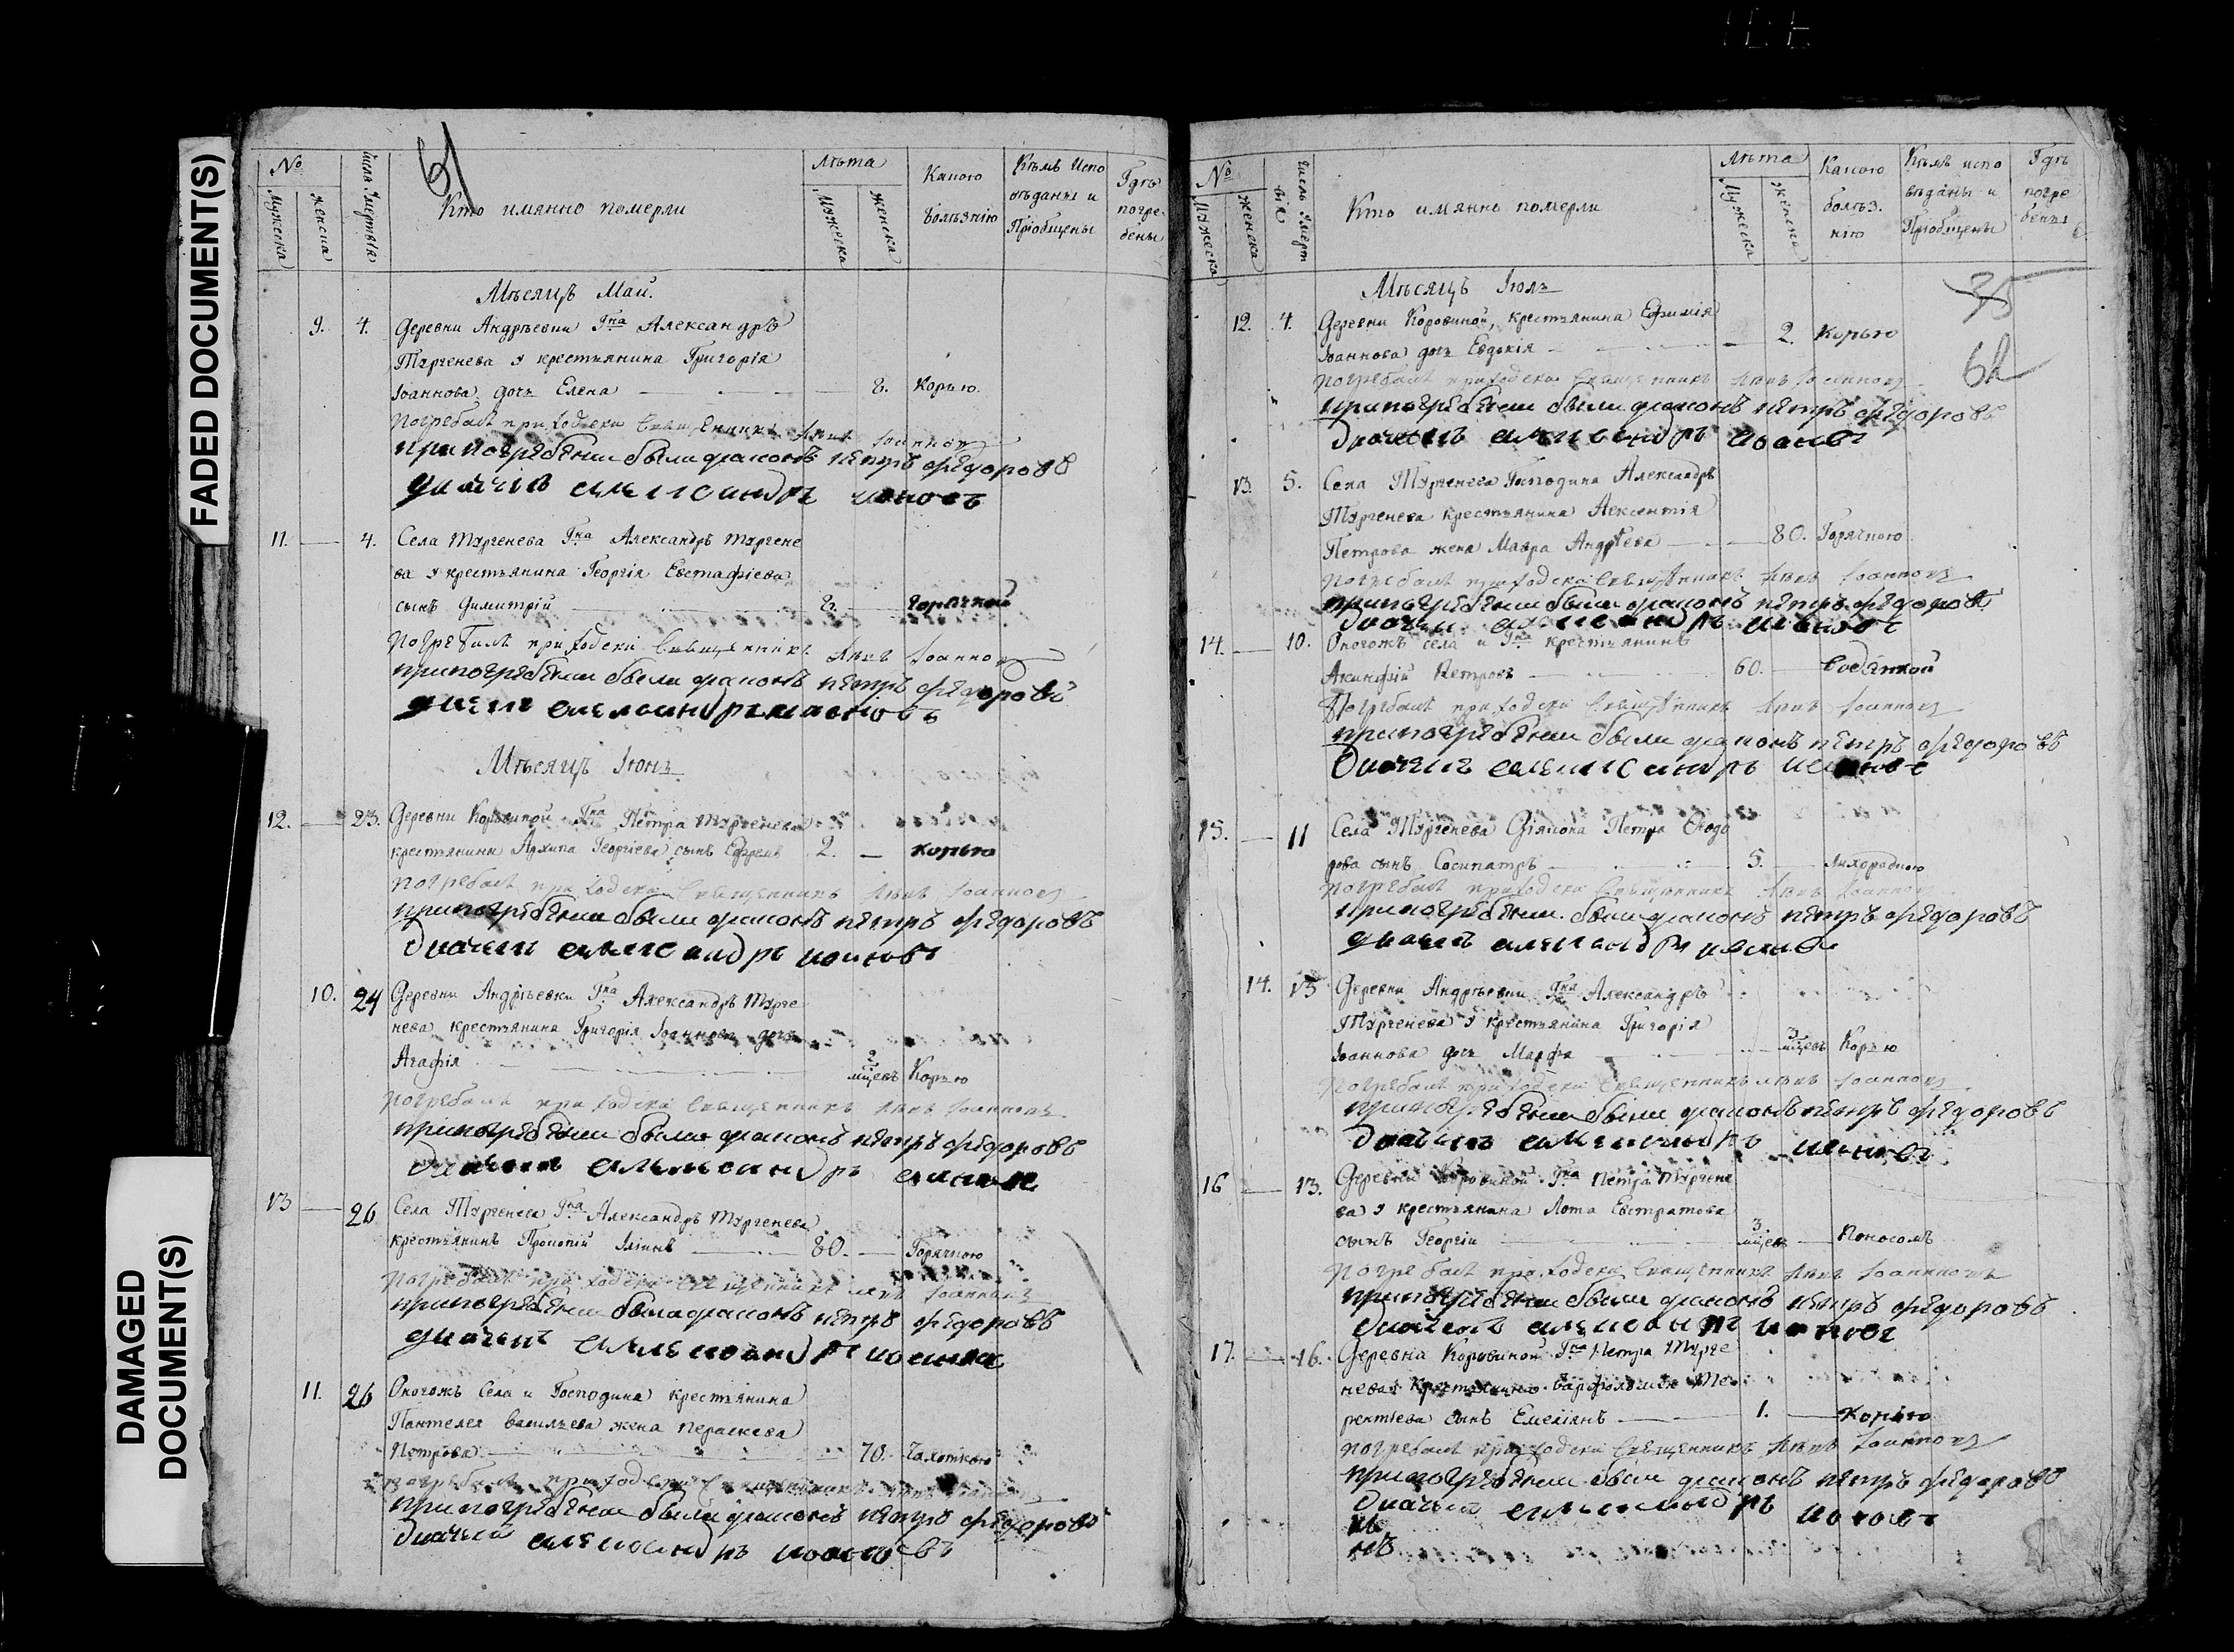 FADED DOCUMENT(S)
DAMAGED
DOCUMENT(S)
61
№
Мужеска
женска
Числа Умертвiя
Кто имянно померли
Лѣта
Мужеска
женска
Какою болѣзнiю
Кѣмъ Исповѣданы и Прiобщены
Гдѣ погребены
Мѣсяцъ Маи.
9. 4. Деревни Андрѣевки Гна Александръ
Тургенева у крестьянина Григорiя
Iоаннова дочь Елена 8. Корью.
Погребалъ приходски Священникъ Левъ Iоанновъ
при погребенiи были диаконъ петръ федоровъ
диачекъ александръ
11. 4. Села Тургенева Гна Александръ Тургене
ва у крестьянина Георгiя Евстафiева
сынъ Димитрiй 8. горячкой
Погребалъ приходски Священникъ Левъ Iоанновъ
при погребенiи были диаконъ петръ федоровъ
диачекъ александръ
Мѣсяцъ Iюнь
12. 23. Деревни Коровиной Гна Петра Тургенева
крестьянина Архипа Георгiева сынъ Ефремъ 2. корью
Погребалъ приходски Священникъ Левъ Iоанновъ
при погребенiи были диаконъ петръ федоровъ
диачекъ александръ
10. 24 Деревни Андрiевки Гна Александръ Турге
нева крестьянина Григорiя Iоаннова дочь
Агафiя 2 мцевъ Корью
Погребалъ приходски Священникъ Левъ Iоанновъ
при погребенiи были диаконъ петръ федоровъ
диачекъ александръ
13 26 Села Тургенева Гна Александръ Тургенева
крестьянинъ Прокопiй Iлiинъ 80. Горячкою
Погребалъ приходски Священникъ Левъ Iоанновъ
при погребенiи были диаконъ петръ федоровъ
диачекъ александръ
11. 26 Оногожъ Села и Господина крестьянина
Пантелея Васильева жена Пераскева
Петрова 70. Чахоткою
Погребалъ приходски Священникъ
при погребенiи были диаконъ петръ федоровъ
диачекъ александръ
№
Мужеска
женска
Числа Умертвiя
Кто имяннъ померли
Лѣта
Мужеска
женска
Какою болѣзнiю
Кѣмъ исповѣданы и Прiобщены
Гдѣ погребены
35
62
Мѣсяцъ Iюль
12. 4. Деревни Коровиной, крестьянина Ефимiя
Iоаннова дочь Евдокiя 2. Корью
Погребалъ приходски Священникъ Левъ Iоанновъ
при погребенiи были диаконъ петръ федоровъ
диачекъ александръ
13. 5. Села Тургенева Господина Александръ
Тургенева крестьянина Авксентiя
Петрова жена Мавра Андрѣева 80. Горячкою
Погребалъ приходски Священникъ Левъ Iоанновъ
при погребенiи были диаконъ петръ федоровъ
диачекъ александръ
14. 10. Оногожъ села и Гна крестьянинъ
Акинфiй Петровъ 60. Водянкой
Погребалъ приходски Священникъ Левъ Iоанновъ
при погребенiи были диаконъ петръ федоровъ
диачекъ александръ
15. 11 Села Тургенева Дiякона Петра Ѳедо
рова сынъ Сосипатръ 5. Лихорадкою
Погребалъ приходски Священникъ Левъ Iоанновъ
при погребенiи были диаконъ петръ федоровъ
диачекъ александръ
14. 13 Деревни Андрѣевки Гна Александръ
Тургенева у крестьянина Григорiя
Iоаннова дочь Марфа 3 мцевъ Корью
Погребалъ приходски Священникъ Левъ Iоанновъ
при погребенiи были диаконъ петръ федоровъ
диачекъ александръ
16 13. Деревни Коровиной Гна Петра Тургене
ва у крестьянина Лота Евстратова
сынъ Георгiи 3. мцевъ Поносомъ
Погребалъ приходски Священникъ Левъ Iоанновъ
при погребенiи были диаконъ петръ федоровъ
диачекъ александръ
17. 16. Деревни Коровиной Гна Петра Турге
нева крестьянина Варфоломея Те
рентiева сынъ Емелiянъ 1. Корью
Погребалъ приходски Священникъ Левъ Iоанновъ
при погребенiи были диаконъ петръ федоровъ
диачекъ александръ